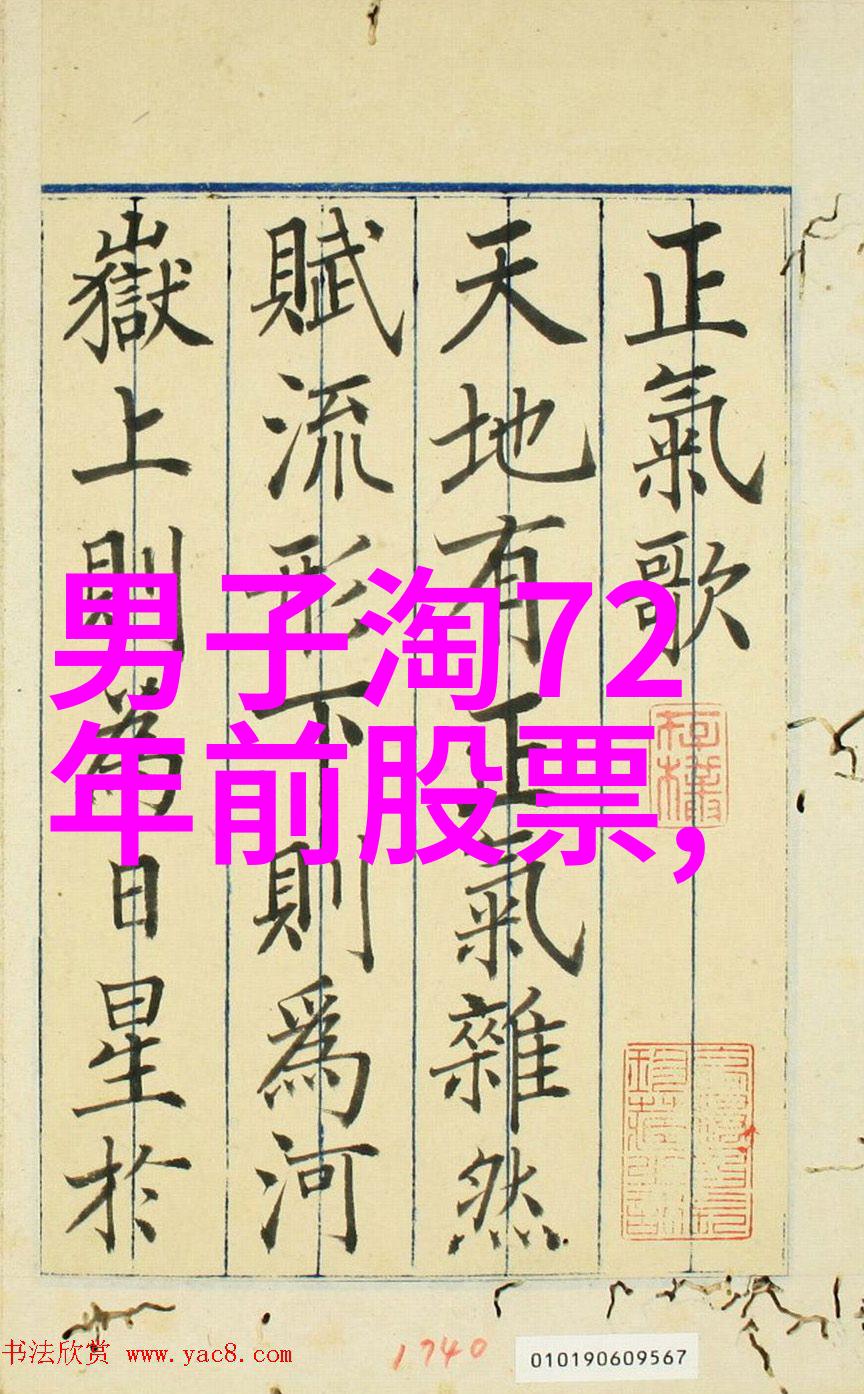 正氣歌
天地有正氣雜然
賦流形下則爲河
嶽上則為日星於
男子淘72
年前股票,
书法欣赏 www.yac8.com
1740
010190609567